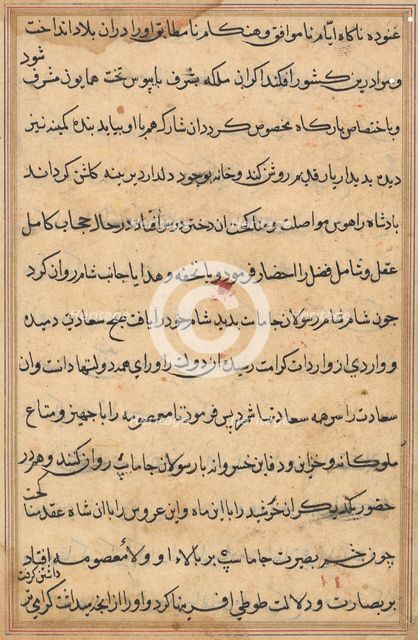 غنوده ناکاه ایام ناموافق و هنکام نامطابق او را در ان بلاد انداخت
و مرا درین کشور افکند اکر ان ملکه بشرف پابوس تخت همایون مشرف شود
و باختصاص بارکاه مخصوص کردد ان شارک هم با او بیاید بنده کمینه نیز
دیده بدیدار یار قدیم روشن کند و خانه بوجود دلدار دیرینه کلشن کرداند
بادشاه را هوس مواصلت و مناکحت ان دختر در سر افتاد در حال حجاب کامل
عقل و شامل فضل را احضار فرمود و با تحفه و هدایا جانب شام روان کرد
جون شاه شام رسولان جاماست بدید شام خود را یافت صبح سعادت دمیده
و واردی از واردات کرامت رسیده از دولت را ورای همه دولتها دانست و ان
سعادت را سر همه سعادتها شمرد پس فرمود تا معصومه را با جهیز و متاع
ملوکانه و خزاین و دفاین خسروانه با رسولان جاماسپ روان کنند و هم در
حضور یکدیکر ان خرشید را با این ماه و این عروس را با ان شاه عقد مناکحت
چون چشم بصیرت جاماسپ بر بالای او و لاء معصومه افتاد
بر بصارت و دلالت طوطی افرینها کرد و او را از انچه میداشت کرامی تر داشتن کرفت